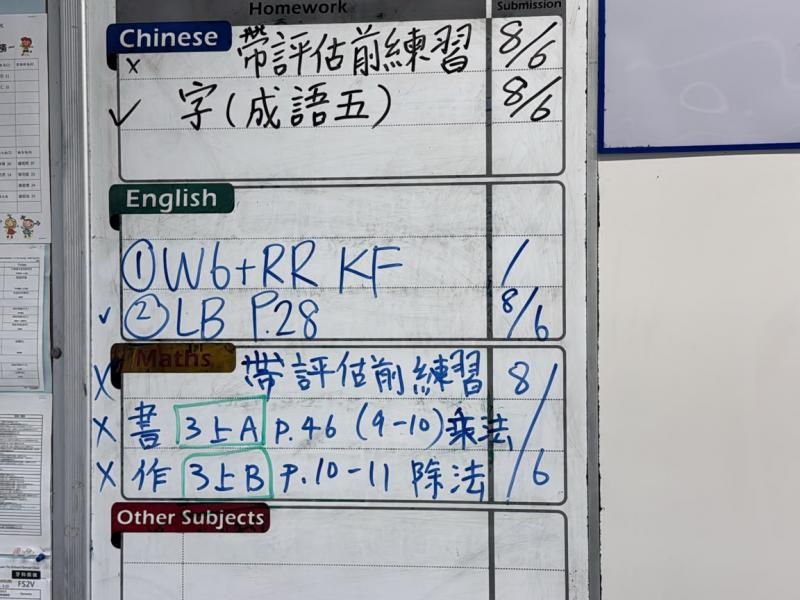 Homework
Submission
Chinese
x 帶評估前練習 8/6
✓ 字(成語五) 8/6
English
① W6+RR KF /
✓ ② LB P.28 8/6
Maths
X 帶評估前練習 8/6
X 書 3上A p.46 (9-10)乘法
X 作 3上B p.10-11 除法
Other Subjects
FS2V